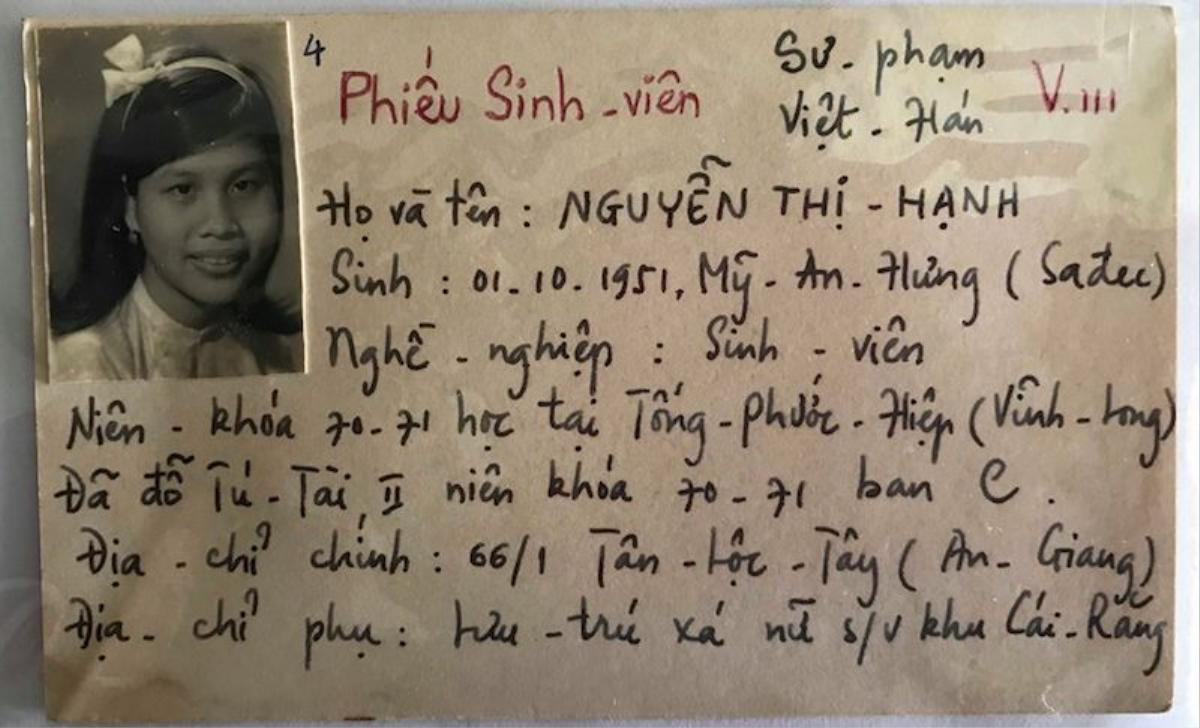 4
Phiếu Sinh-viên
Sư-phạm
Việt-Hán
V.III
Họ và tên : NGUYỄN THỊ-HẠNH
Sinh : 01-10-1951, Mỹ-An-Hưng (Sađec)
Nghề-nghiệp : Sinh-viên
Niên-khóa 70-71 học tại Tống-Phước-Hiệp (Vĩnh-Long)
Đã đỗ Tú-Tài II niên khóa 70-71 ban C.
Địa-chỉ chính : 66/1 Tân-Lộc-Tây (An-Giang)
Địa-chỉ phụ : Lưu-trú xá nữ s/v khu Cái-Răng